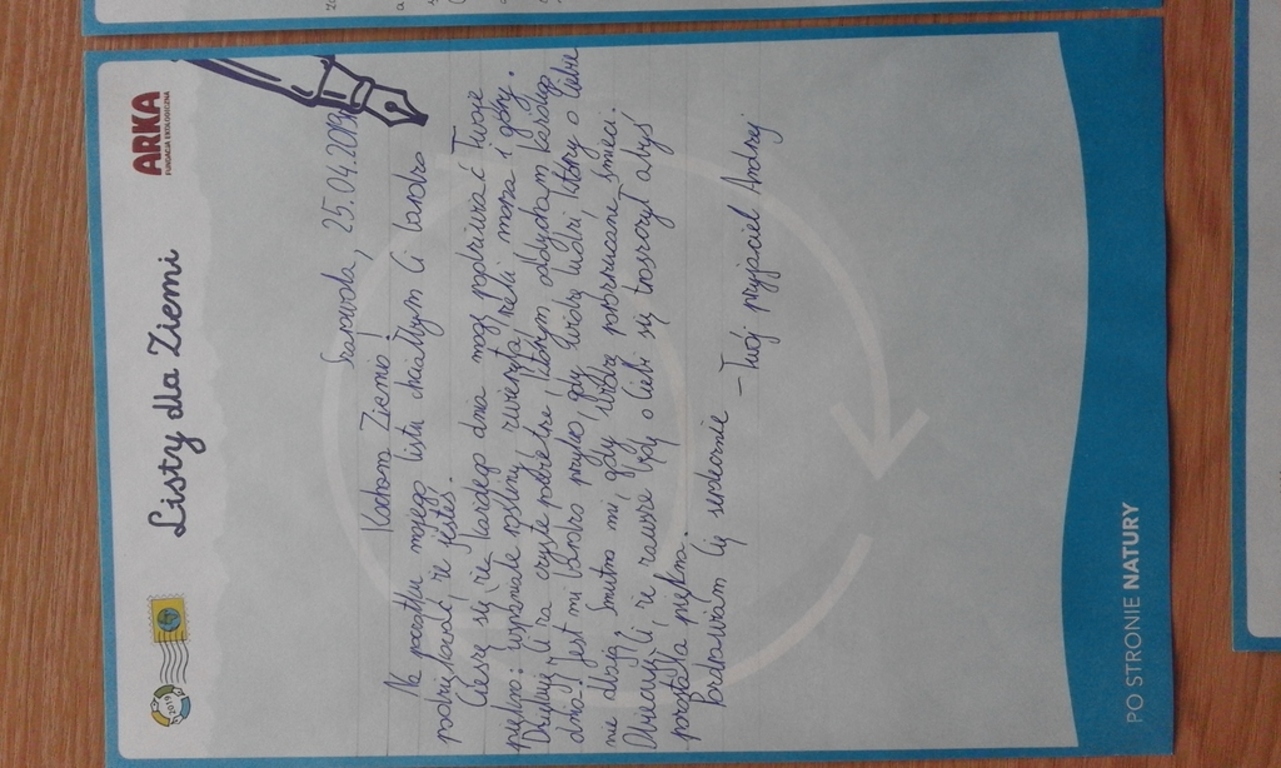 2019
Listy dla Ziemi
ARKA
FUNDACJA EKOLOGICZNA
25.04.2019r
Kochana Ziemio!
Na początku mojego listu chciałbym Ci bardzo
podziękować, że jesteś.
Cieszę się, że każdego dnia mogę podziwiać Twoje
piękno: wspaniałe rośliny, zwierzęta, rzeki, morza i góry.
Dziękuję Ci za czyste powietrze, którym oddycham każdego
dnia. Jest mi bardzo przykro, gdy widzę ludzi, którzy o Ciebie
nie dbają. Smutno mi, gdy widzę porozrzucane śmieci.
Obiecuję Ci, że zawsze będę o Ciebie się troszczył abyś
pozostała piękna.
Pozdrawiam Cię serdecznie
- Twój przyjaciel Andrzej
PO STRONIE NATURY